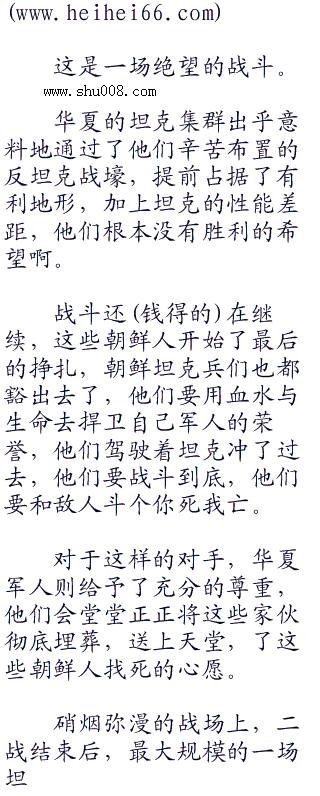 (www.heihei66.com)
这是一场绝望的战斗。
www.shu008.com
华夏的坦克集群出乎意
料地通过了他们辛苦布置的
反坦克战壕，提前占据了有
利地形，加上坦克的性能差
距，他们根本没有胜利的希
望啊。
战斗还(钱得的)在继
续，这些朝鲜人开始了最后
的挣扎，朝鲜坦克兵们也都
豁出去了，他们要用血水与
生命去捍卫自己军人的荣
誉，他们驾驶着坦克冲了过
去，他们要战斗到底，他们
要和敌人斗个你死我亡。
对于这样的对手，华夏
军人则给予了充分的尊重，
他们会堂堂正正将这些家伙
彻底埋葬，送上天堂，了这
些朝鲜人找死的心愿。
硝烟弥漫的战场上，二
战结束后，最大规模的一场
坦